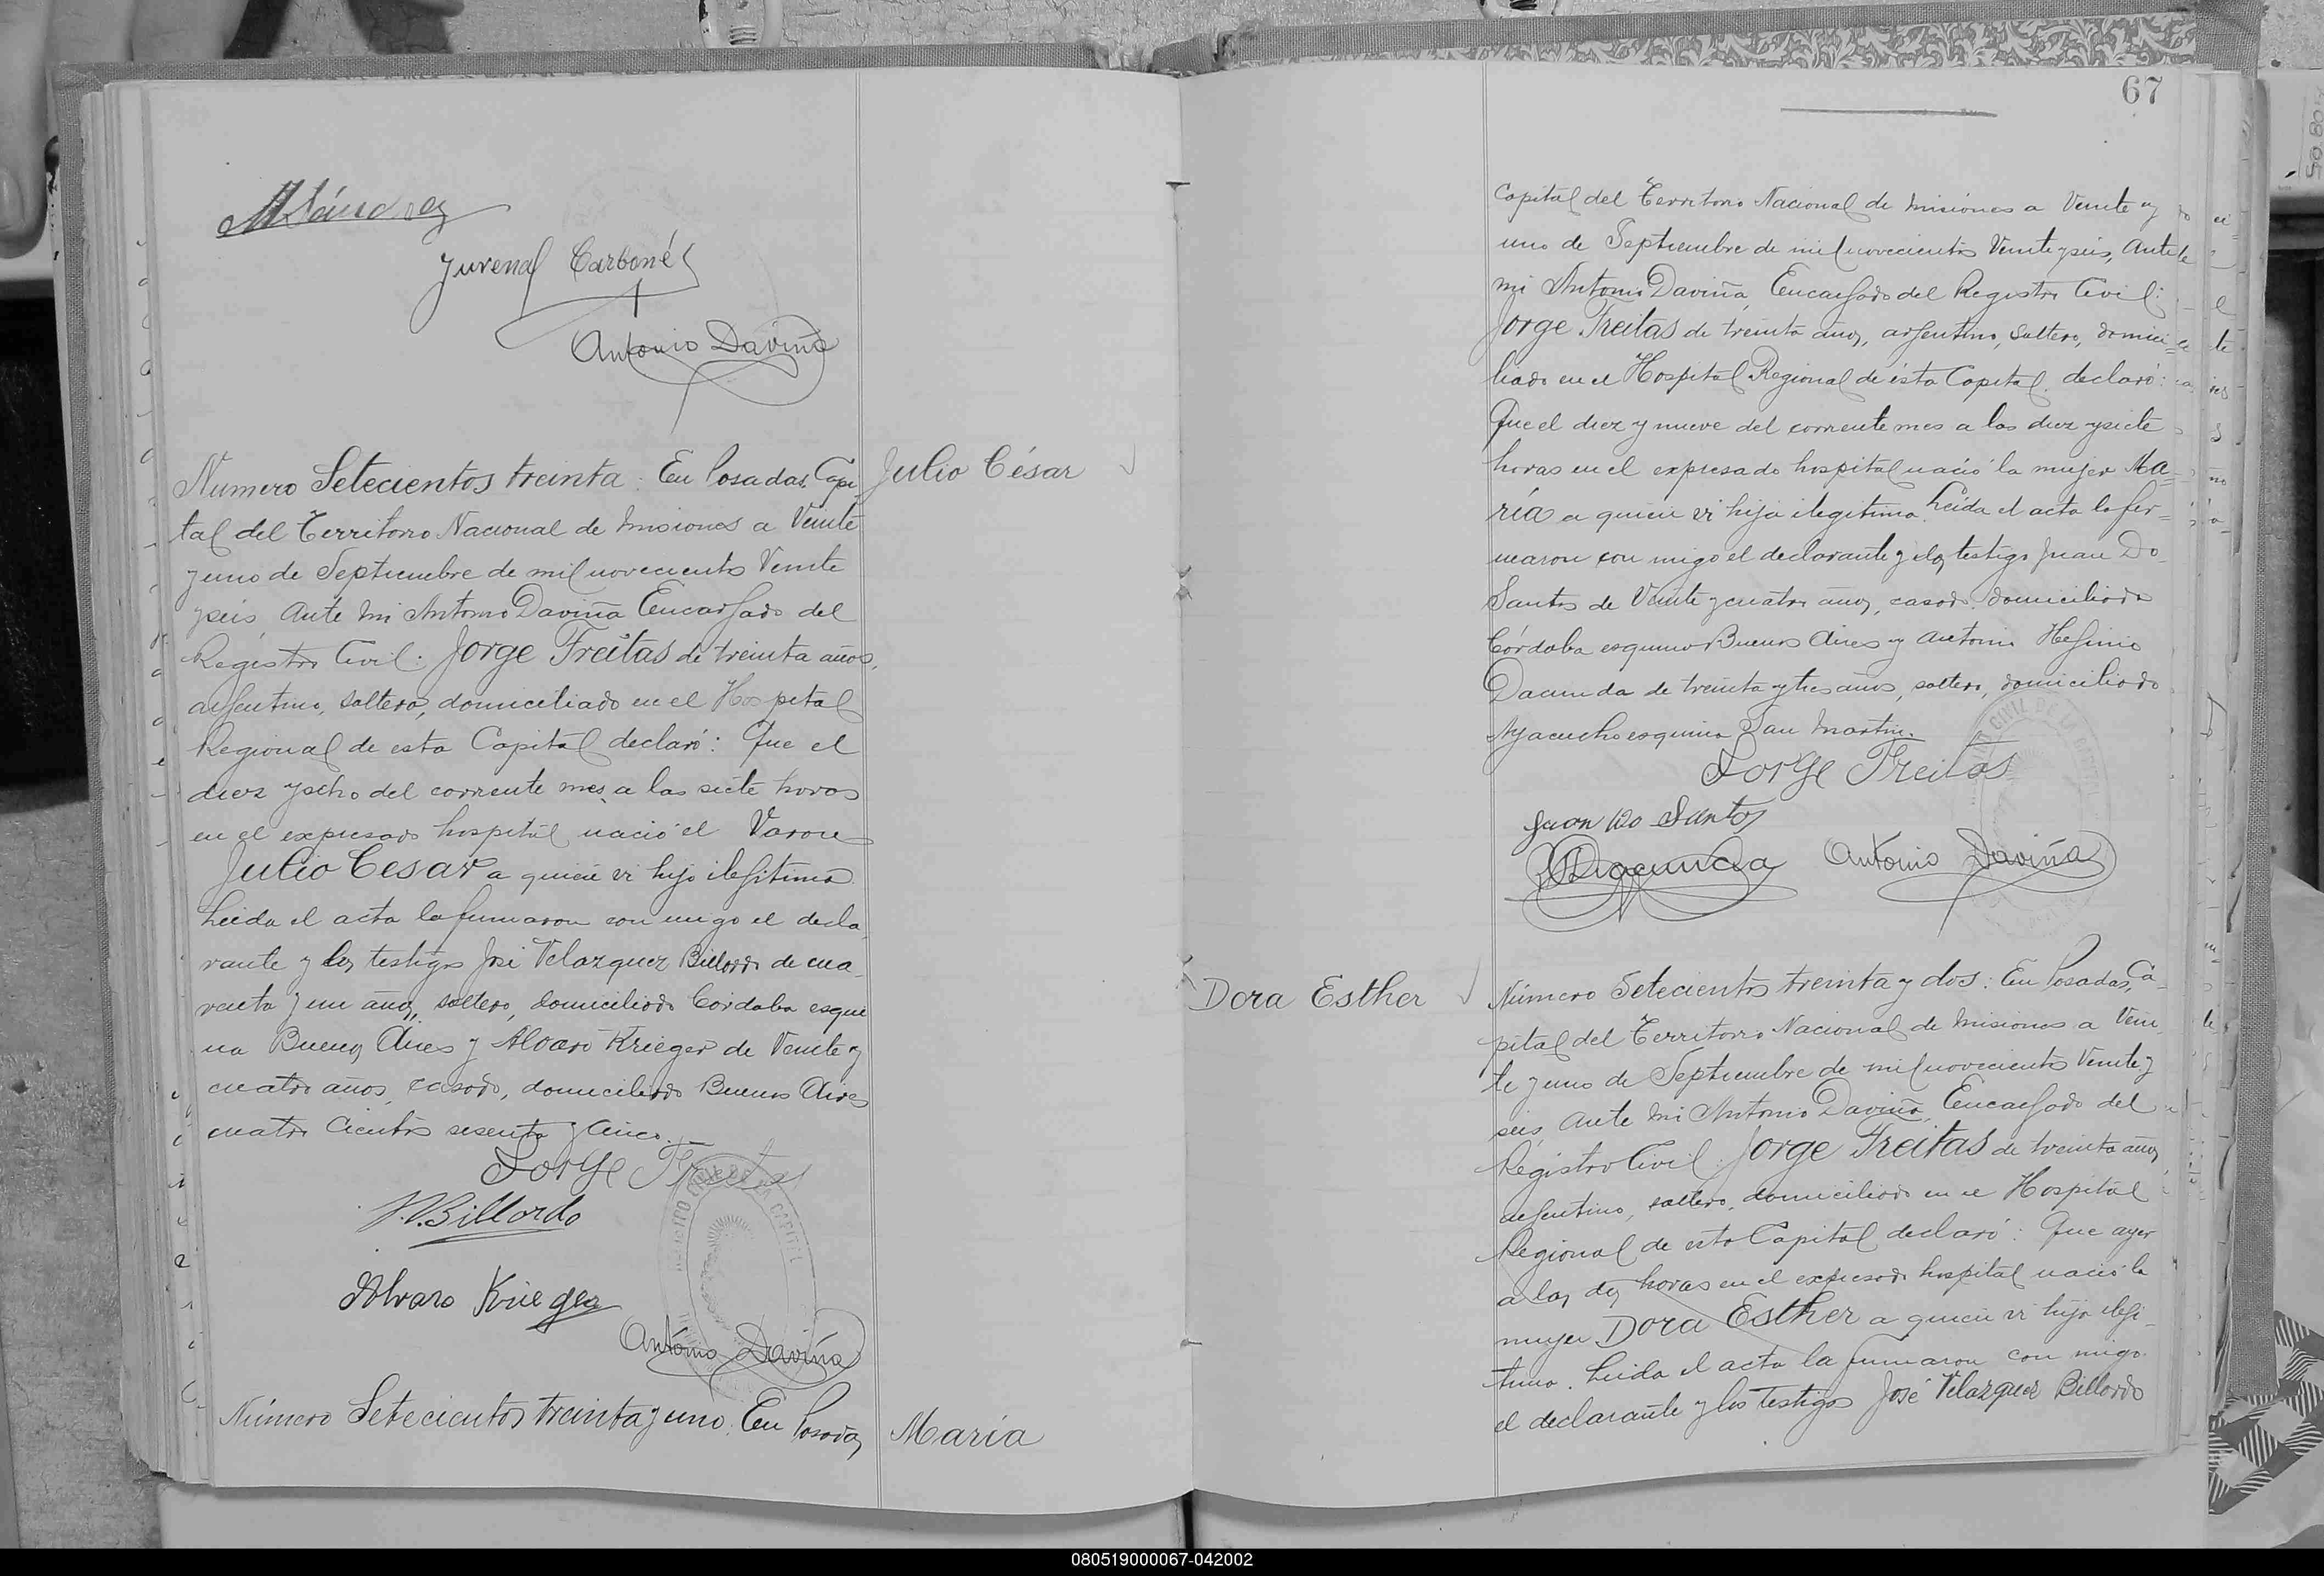 Juvenal Carbonés
Antonio Daviña
Numero Setecientos treinta: En Posadas, Capi
Julio César
tal del Territorio Nacional de Misiones a Veinte
y uno de Septiembre de mil novecientos Veinte
y seis, Ante mi Antonio Daviña Encargado del
Registro Civil: Jorge Freitas de treinta años,
argentino, soltero, domiciliado en el Hospital
Regional de esta Capital declaró: Que el
diez y ocho del corriente mes a las siete horas
en el expresado hospital nació el Varon
Julio Cesar a quien vi hijo ilegitimo.
Leida el acta la firmaron con migo el decla
rante y los testigos José Velazquez Billordo de cua
renta y un años, soltero, domiciliado Córdoba esqui
na Buenos Aires y Alvaro Krieger de Veinte y
cuatro años, casado, domiciliado Buenos Aires
cuatro cientos sesenta y cinco.
Jorge Freitas
J.V.Billordo
Alvaro Krieger
Antonio Daviña
Número Setecientos treinta y uno: En Posadas,
María
67
Capital del Territorio Nacional de Misiones a Veinte y
uno de Septiembre de mil novecientos Veinte y seis, Ante
mi Antonio Daviña, Encargado del Registro Civil:
Jorge Freitas de treinta años, argentino, soltero, domici=
liado en el Hospital Regional de ésta Capital declaró:
Que el diez y nueve del corriente mes a las diez y siete
horas en el expresado hospital nació la mujer Ma=
ría a quien vi hija ilegitima. Leida el acta la fir=
maron con migo el declarante y los testigos Juan Do
Santos de Veinte y cuatro años, casado, domiciliado
Córdoba esquina Buenos Aires y Antonio Hefinio
Dacunda de treinta y tres años, soltero, domiciliado
Ayacucho esquina San Martin.
Jorge Freitas
Juan Do Santos
Antonio Daviña
Dora Esther
Número Setecientos treinta y dos: En Posadas, Ca-
pital del Territorio Nacional de Misiones a Vein
te y uno de Septiembre de mil novecientos Veinte y
seis, Ante mi Antonio Daviña, Encargado del
Registro Civil: Jorge Freitas de treinta años,
argentino, soltero, domiciliado en el Hospital
Regional de esta Capital declaró: Que ayer
a las dos horas en el expresado hospital nació la
mujer Dora Esther a quien vi hija ilegi-
tima. Leida el acta la firmaron con migo
el declarante y los testigos José Velazquez Billordo
080519000067-042002